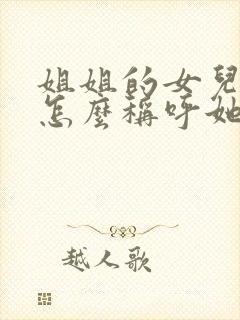 姐姐的女兒
怎麼稱呼她
越人歌